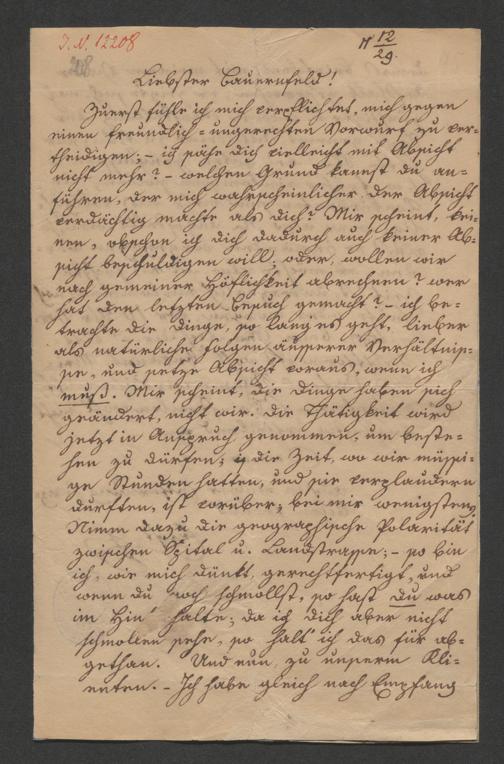 I. N. 12208
12
29.
208
Liebster Bauernfeld!
Zuerst fühle ich mich verpflichtet, mich gegen
einen freundlich-ungerechten Vorwurf zu ver-
theidigen; – ich sähe dich vielleicht mit Absicht
nicht mehr? – welchen Grund kannst du an-
führen, der mich wahrscheinlicher der Absicht
verdächtig machte als dich? Mir scheint, kei-
nen, obschon ich dich dadurch auch keiner Ab-
sicht beschuldigen will; oder, wollen wir
nach gemeiner Höflichkeit abrechnen? wer
hat den letzten Besuch gemacht? – ich be-
trachte die Dinge, so lang es geht, lieber
als natürliche Folgen äusserer Verhältnis-
se, und setze Absicht voraus, wenn ich
muß. Mir scheint, die Dinge haben sich
geändert, nicht wir. Die Thätigkeit wird
jetzt in Anspruch genommen, um beste-
hen zu dürfen; die Zeit, wo wir müssi-
ge Stunden hatten, und sie verplaudern
durften, ist vorüber; bei mir wenigstens.
Nimm dazu die geographische Polarität
zwischen Spital u. Landstrasse; – so bin
ich, wie mich dünkt, gerechtfertigt, und
wenn du noch schmollst, so hast du was
im Hin halte; da ich dich aber nicht
schmollen sehe, so halt' ich das für ab-
gethan. Und nun zu unserm Kli-
enten. – Ich habe gleich nach Empfang